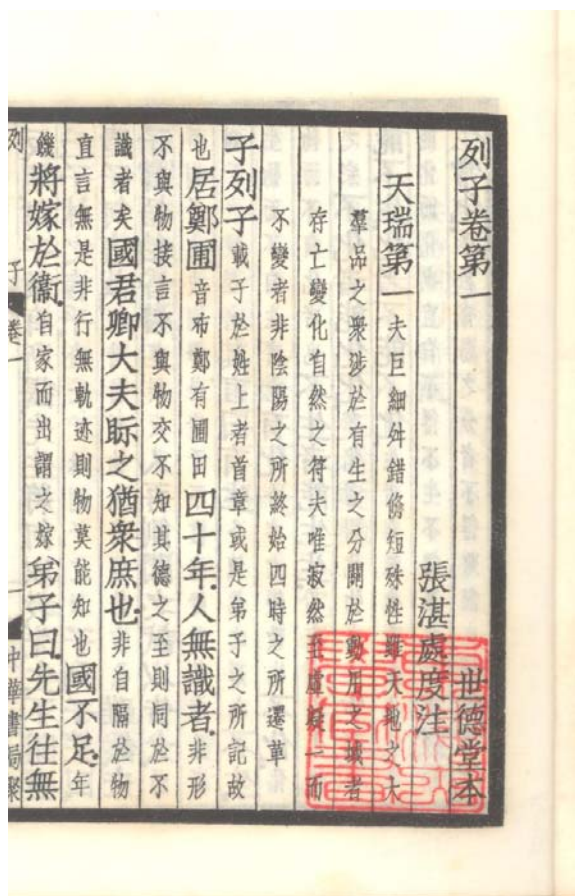 列子卷第一 世德堂本
張湛處度注
天瑞第一 夫巨細舛錯脩短殊性雖天地之大
羣品之衆涉於有生之分關於動用之域者
存亡變化自然之符夫唯寂然至虛凝一而
不變者非陰陽之所終始四時之所遷革
子列子載子於姓上者首章或是弟子之所記故
也居鄭圃音布鄭有圃田四十年.人無識者.非形
不與物接言不與物交不知其德之至則同於不
識者矣國君卿大夫眎之猶衆庶也.非自隔於物
直言無是非行無軌迹則物莫能知也國不足.年
饑將嫁於衞.自家而出謂之嫁弟子曰.先生往無
列 子 卷一 一 中華書局聚